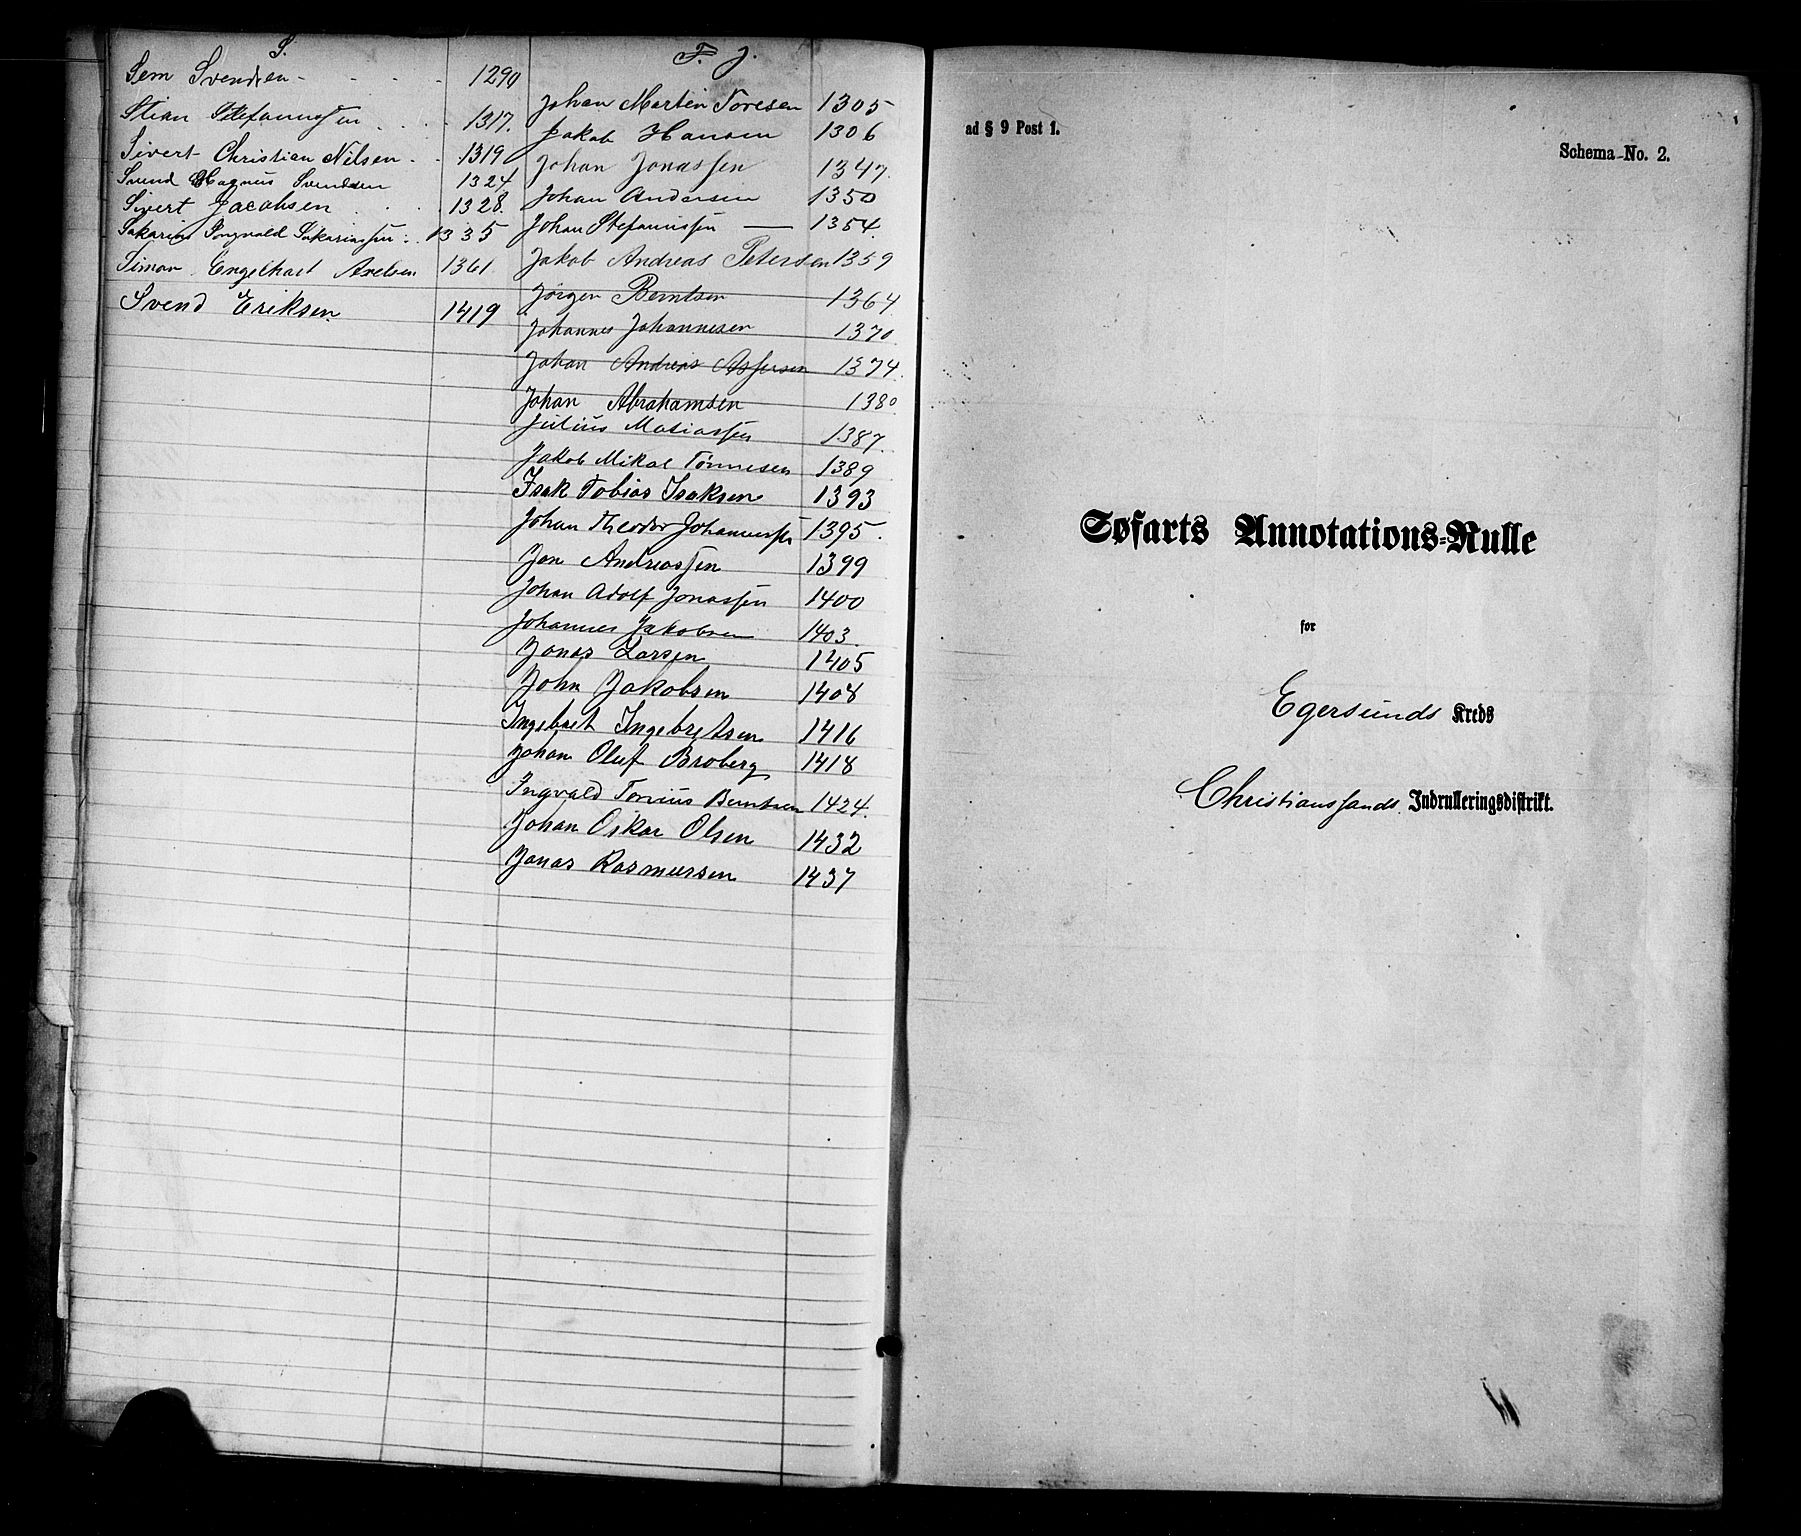 S.
Sem Svendsen - - - - 1290
Stian Stefanussen . . . 1317.
Sivert Christian Nilsen . . 1319
Svend Magnus Svendsen 1324.
Sivert Jacobsen . . . 1328.
Sakarias Ingvald Sakariassen . . 1335
Simon Engelhart Axelsen 1361
Svend Eriksen 1419
J. J.
Johan Martin Toresen 1305
Jakob Hansen 1306
Johan Jonassen 1347.
Johan Andersen 1350
Johan Stefanussen — 1354.
Jakob Andreas Petersen 1359
Jørgen Berntsen 1364
Johannes Johannesen 1370
Johan Andreas Assersen 1374.
Johan Abrahamsen 1380
Julius Matiassen 1387.
Jakob Mikal Tønnesen 1389
Isak Tobias Isaksen 1393
Johan Theodor Johannessen 1395.
Jan Andreassen 1399
Johan Adolf Jonassen 1400
Johannes Jakobsen 1403.
Jonas Larsen 1405
John Jakobsen 1408
Ingebret Ingebretsen 1416
Johan Oluf Broberg 1418
Ingvald Tonius Berntsen 1424.
Johan Oskar Olsen 1432
Jonas Rasmussen 1437
ad § 9 Post 1.
Schema No. 2.
Søfarts Annotations-Rulle
for
Egersunds Kreds
Christianssands Indrulleringsdistrikt.